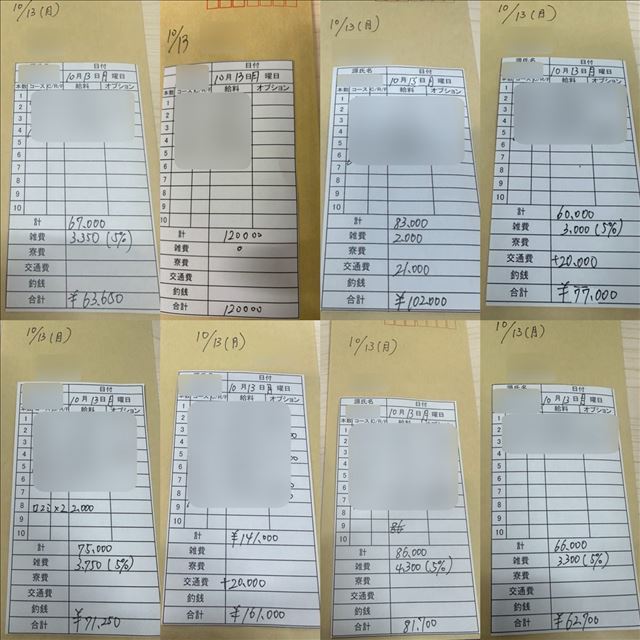 10/13(月)
源氏名
日付
10月13日月曜日
本数 コース 給料 オプション
1
2
3
4
5
6
7
8
9
10
計 67.000
雑費 3.350 (5%)
寮費
交通費
釣銭
合計 ¥63,650
10/13
日付
10月13日月曜日
本数 給料 オプション
1
2
3
4
5
6
7
8
9
10
計 120000
雑費 0
寮費
交通費
釣銭
合計 120000
10/13(月)
源氏名 日付
10月13日月曜日
本数 コース 給料 オプション
1
2
3
4
5
6
7
8
9
10
計 83,000
雑費 2.000
寮費
交通費 21,000
釣銭
合計 ¥102,000
10/13(月)
源氏名 日付
10月13日月曜日
本数 コース 給料 オプション
1
2
3
4
5
6
7
8
9
10
計 60,000
雑費 3,000 (5%)
寮費
交通費 +20,000
釣銭
合計 ¥77,000
10/13(月)
日付
10月13日月曜日
本数 コース 給料 オプション
1
2
3
4
5
6
7
8
ロコミ×2 2,000
9
10
計 75,000
雑費 3,750 (5%)
寮費
交通費
釣銭
合計 ¥71,250
10/13(月)
日付
10月13日月曜日
本数 コース 給料 オプション
1
2
3
4
5
6
7
8
9
10
計 ¥141,000
雑費
寮費
交通費 +20,000
釣銭
合計 ¥161,000
10/13(月)
源氏名 日付
10月13日月曜日
本数 コース 給料 オプション
1
2
3
4
5
6
7
8
9
10
計 86,000
雑費 4,300 (5%)
寮費
交通費
釣銭
合計 81,700
10/13(月)
源氏名 日付
10月13日月曜日
本数 コース 給料 オプション
1
2
3
4
5
6
7
8
9
10
計 66,000
雑費 3,300 (5%)
寮費
交通費
釣銭
合計 ¥62,700